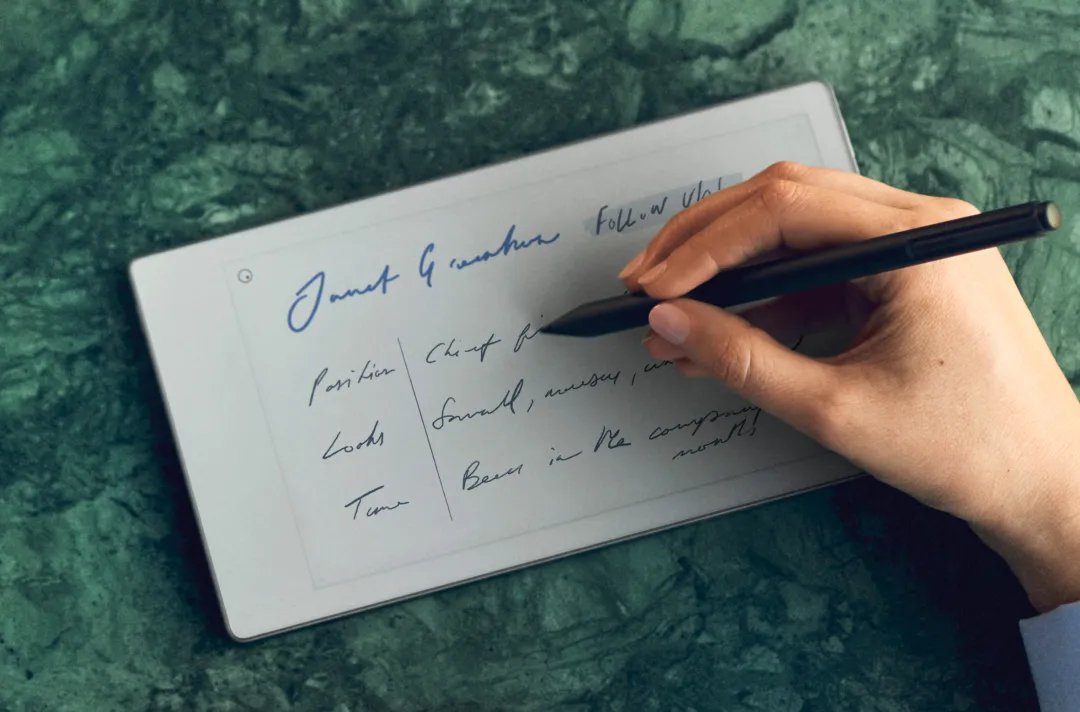 Janet
Follow Up!
Position
Chief
Looks
Small, mousy,
Time
Been in the company
month!